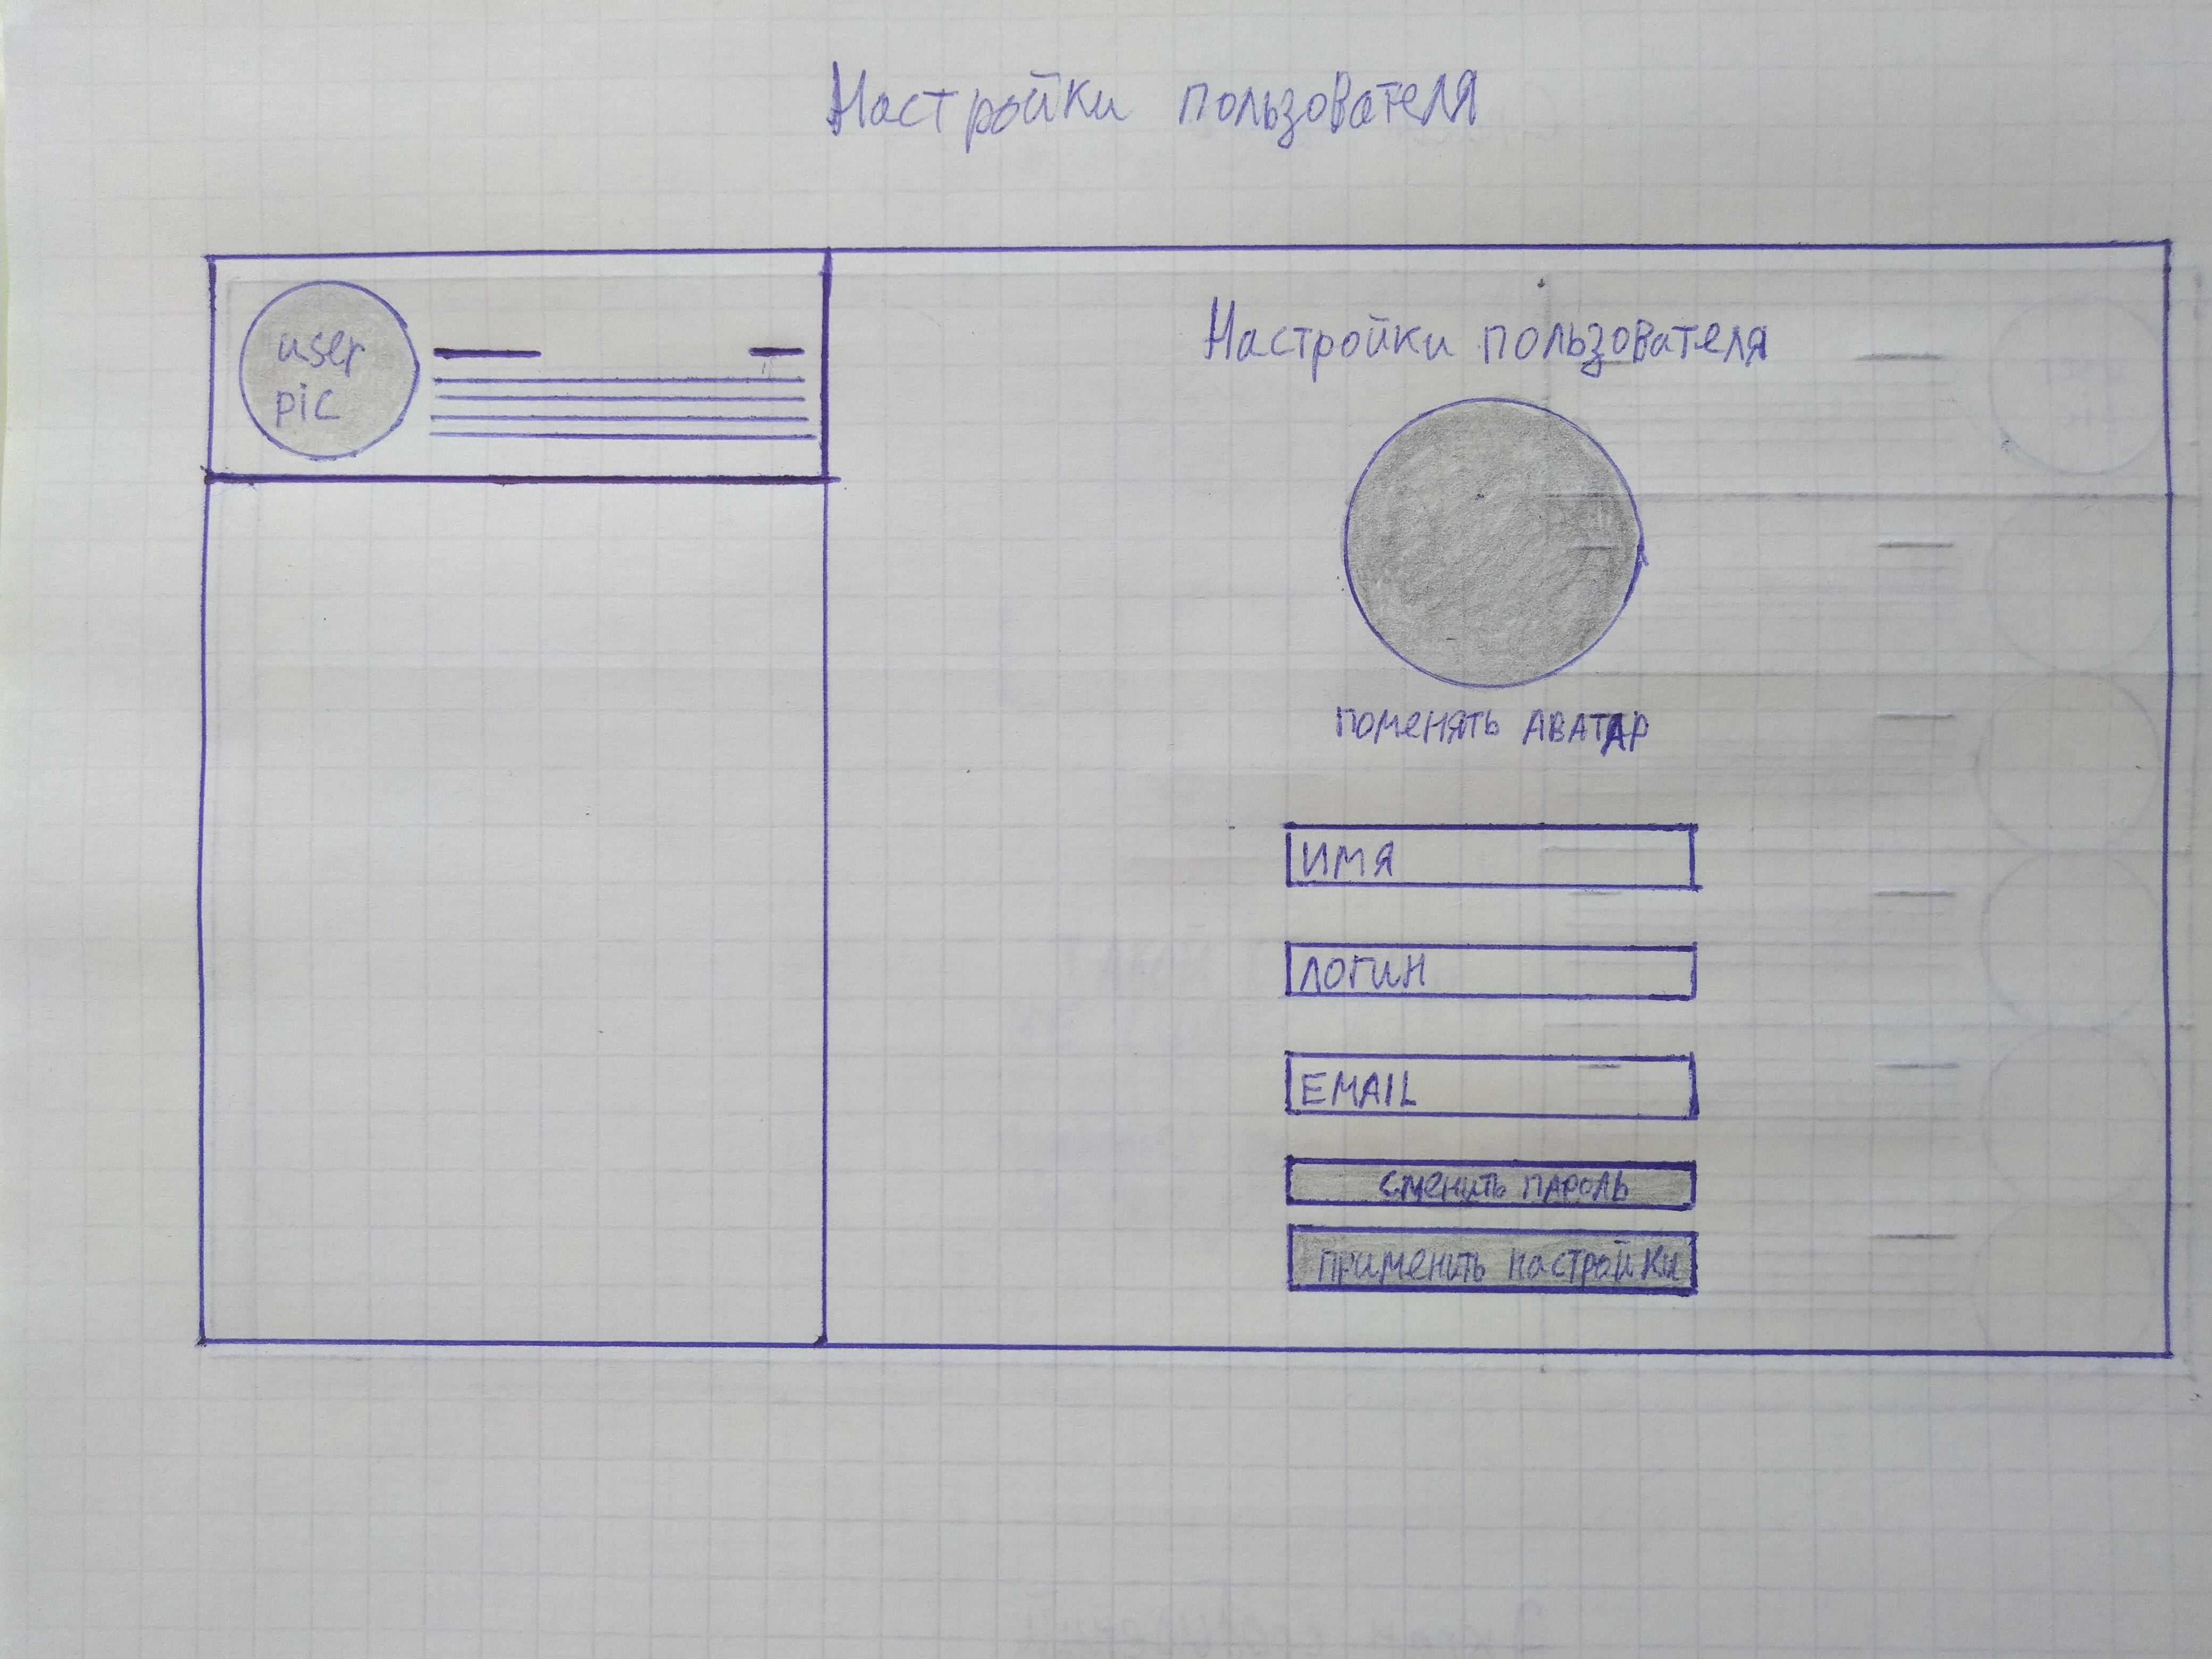 Настройки пользователя
user
pic
Настройки пользователя
поменять аватар
ИМЯ
ЛОГИН
EMAIL
сменить пароль
применить настройки